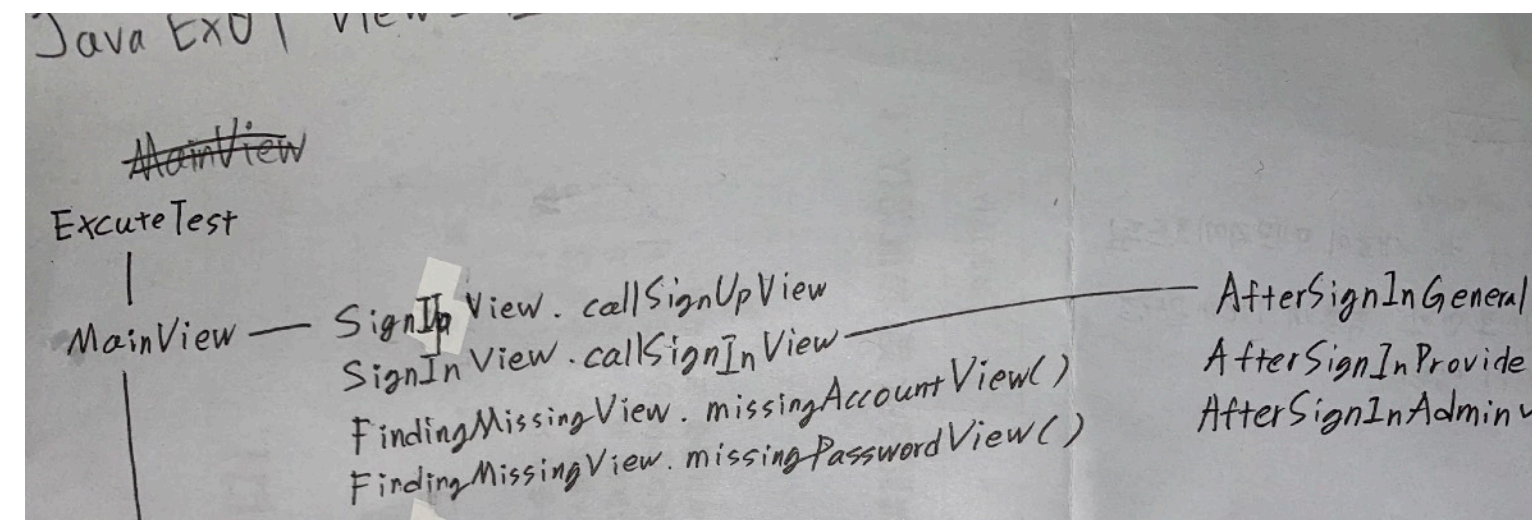 Java Ex01 View
MainView
ExcuteTest
MainView
SignUp View. callSignUpView
SignIn View. callSignInView
FindingMissingView. missingAccountView()
FindingMissingView. missingPasswordView()
AfterSignInGeneral
AfterSignInProvide
AfterSignInAdmin